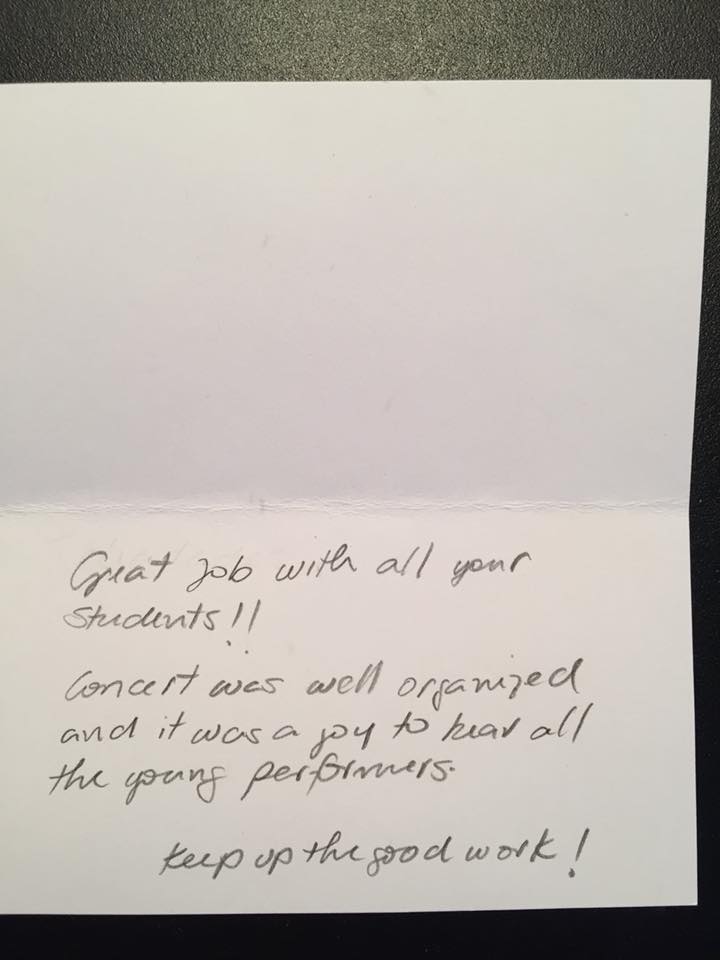 Great Job with all your
Students!!
Concert was well organized
and it was a joy to hear all
the young performers.
Keep up the good work!